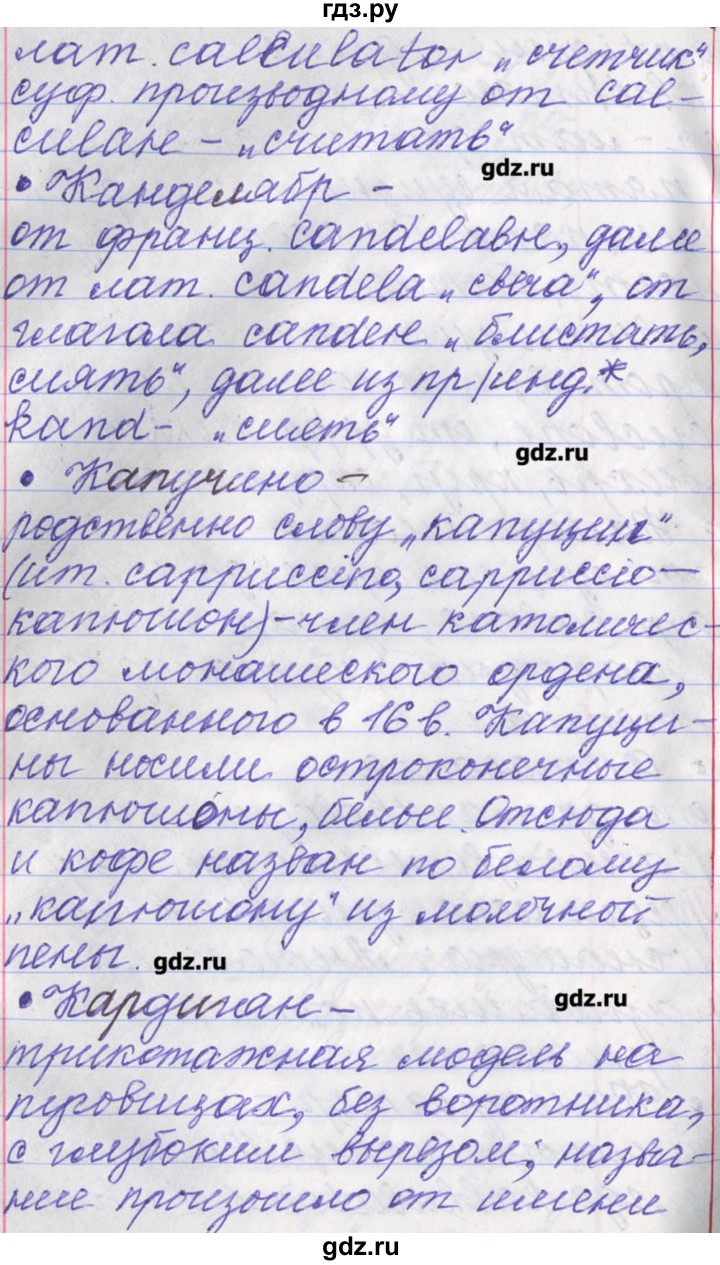 гдз.ру
лат. calculator „счетчик“
суф. производному от cal-
culare – „считать“
gdz.ru
• Канделябр –
от франц. candelabre, далее
от лат. candela „свеча“, от
глагола candere „блистать,
сиять“, далее из пр/инд.*
kand- „сиять“
gdz.ru
• Капучино –
родственно слову „капуцин“
(ит. cappuccino, cappuccio –
капюшон) – член католичес-
кого монашеского ордена,
основанного в 16 в. Капуци-
ны носили остроконечные
капюшоны, белые. Отсюда
и кофе назван по белому
„капюшону“ из молочной
пены.
gdz.ru
• Кардиган –
gdz.ru
трикотажная модель на
пуговицах, без воротника,
с глубоким вырезом; назва-
ние произошло от имени
gdz.ru